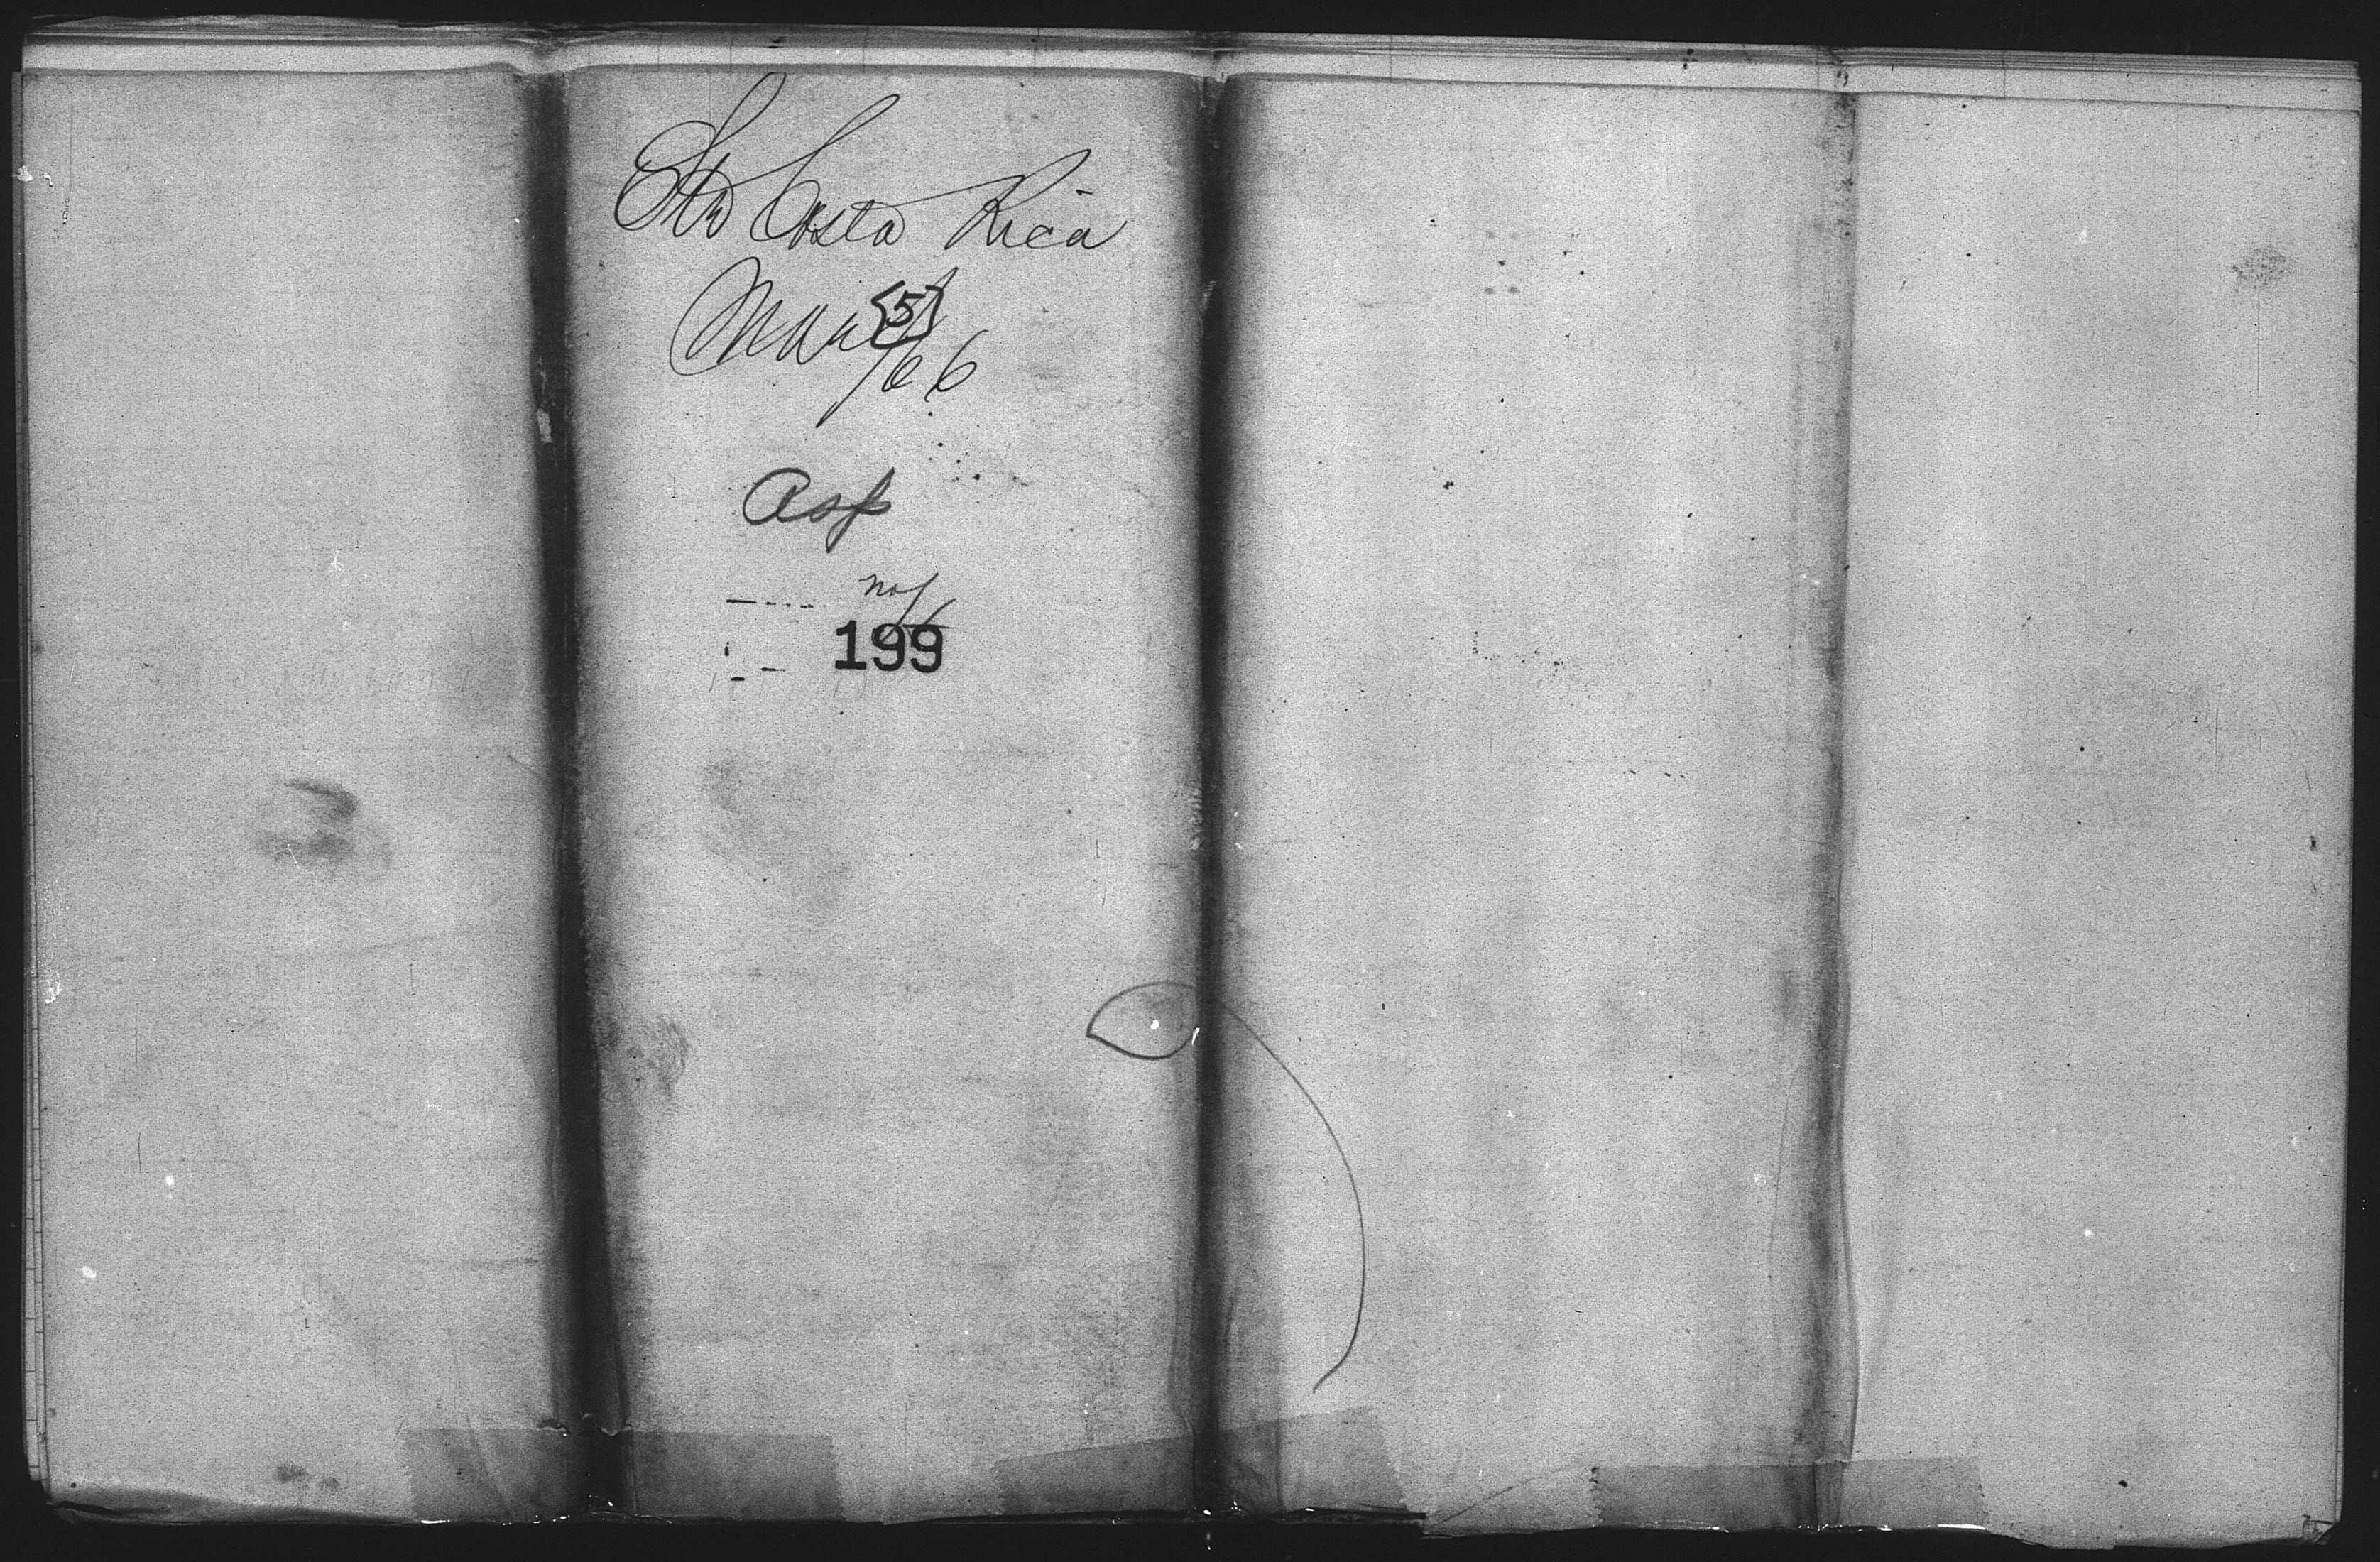 Str Costa Rica
Mar {5}
/66
Asp
no/
199